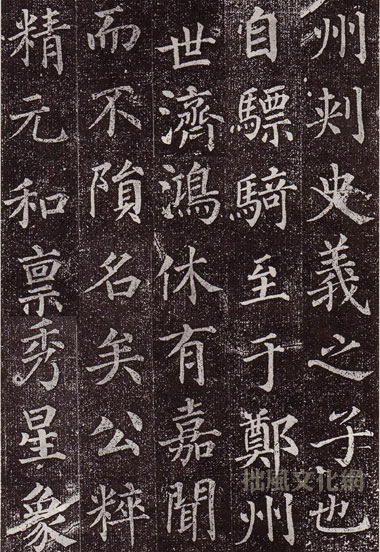 州刺史義之子也
自驃騎至于鄭州
世濟鴻休有嘉聞
而不隕名矣公粹
精元和稟秀星象
拙風文化網